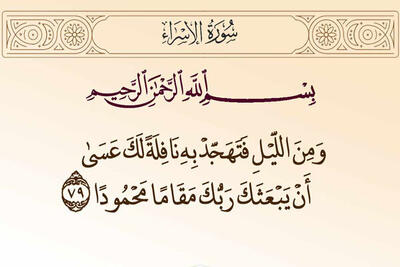 سُورَةُ الإِسْرَاءِ
بِسْمِ اللَّهِ الرَّحْمَٰنِ الرَّحِيمِ
وَمِنَ اللَّيْلِ فَتَهَجَّدْ بِهِ نَافِلَةً لَكَ عَسَىٰ
أَنْ يَبْعَثَكَ رَبُّكَ مَقَامًا مَحْمُودًا ٧٩